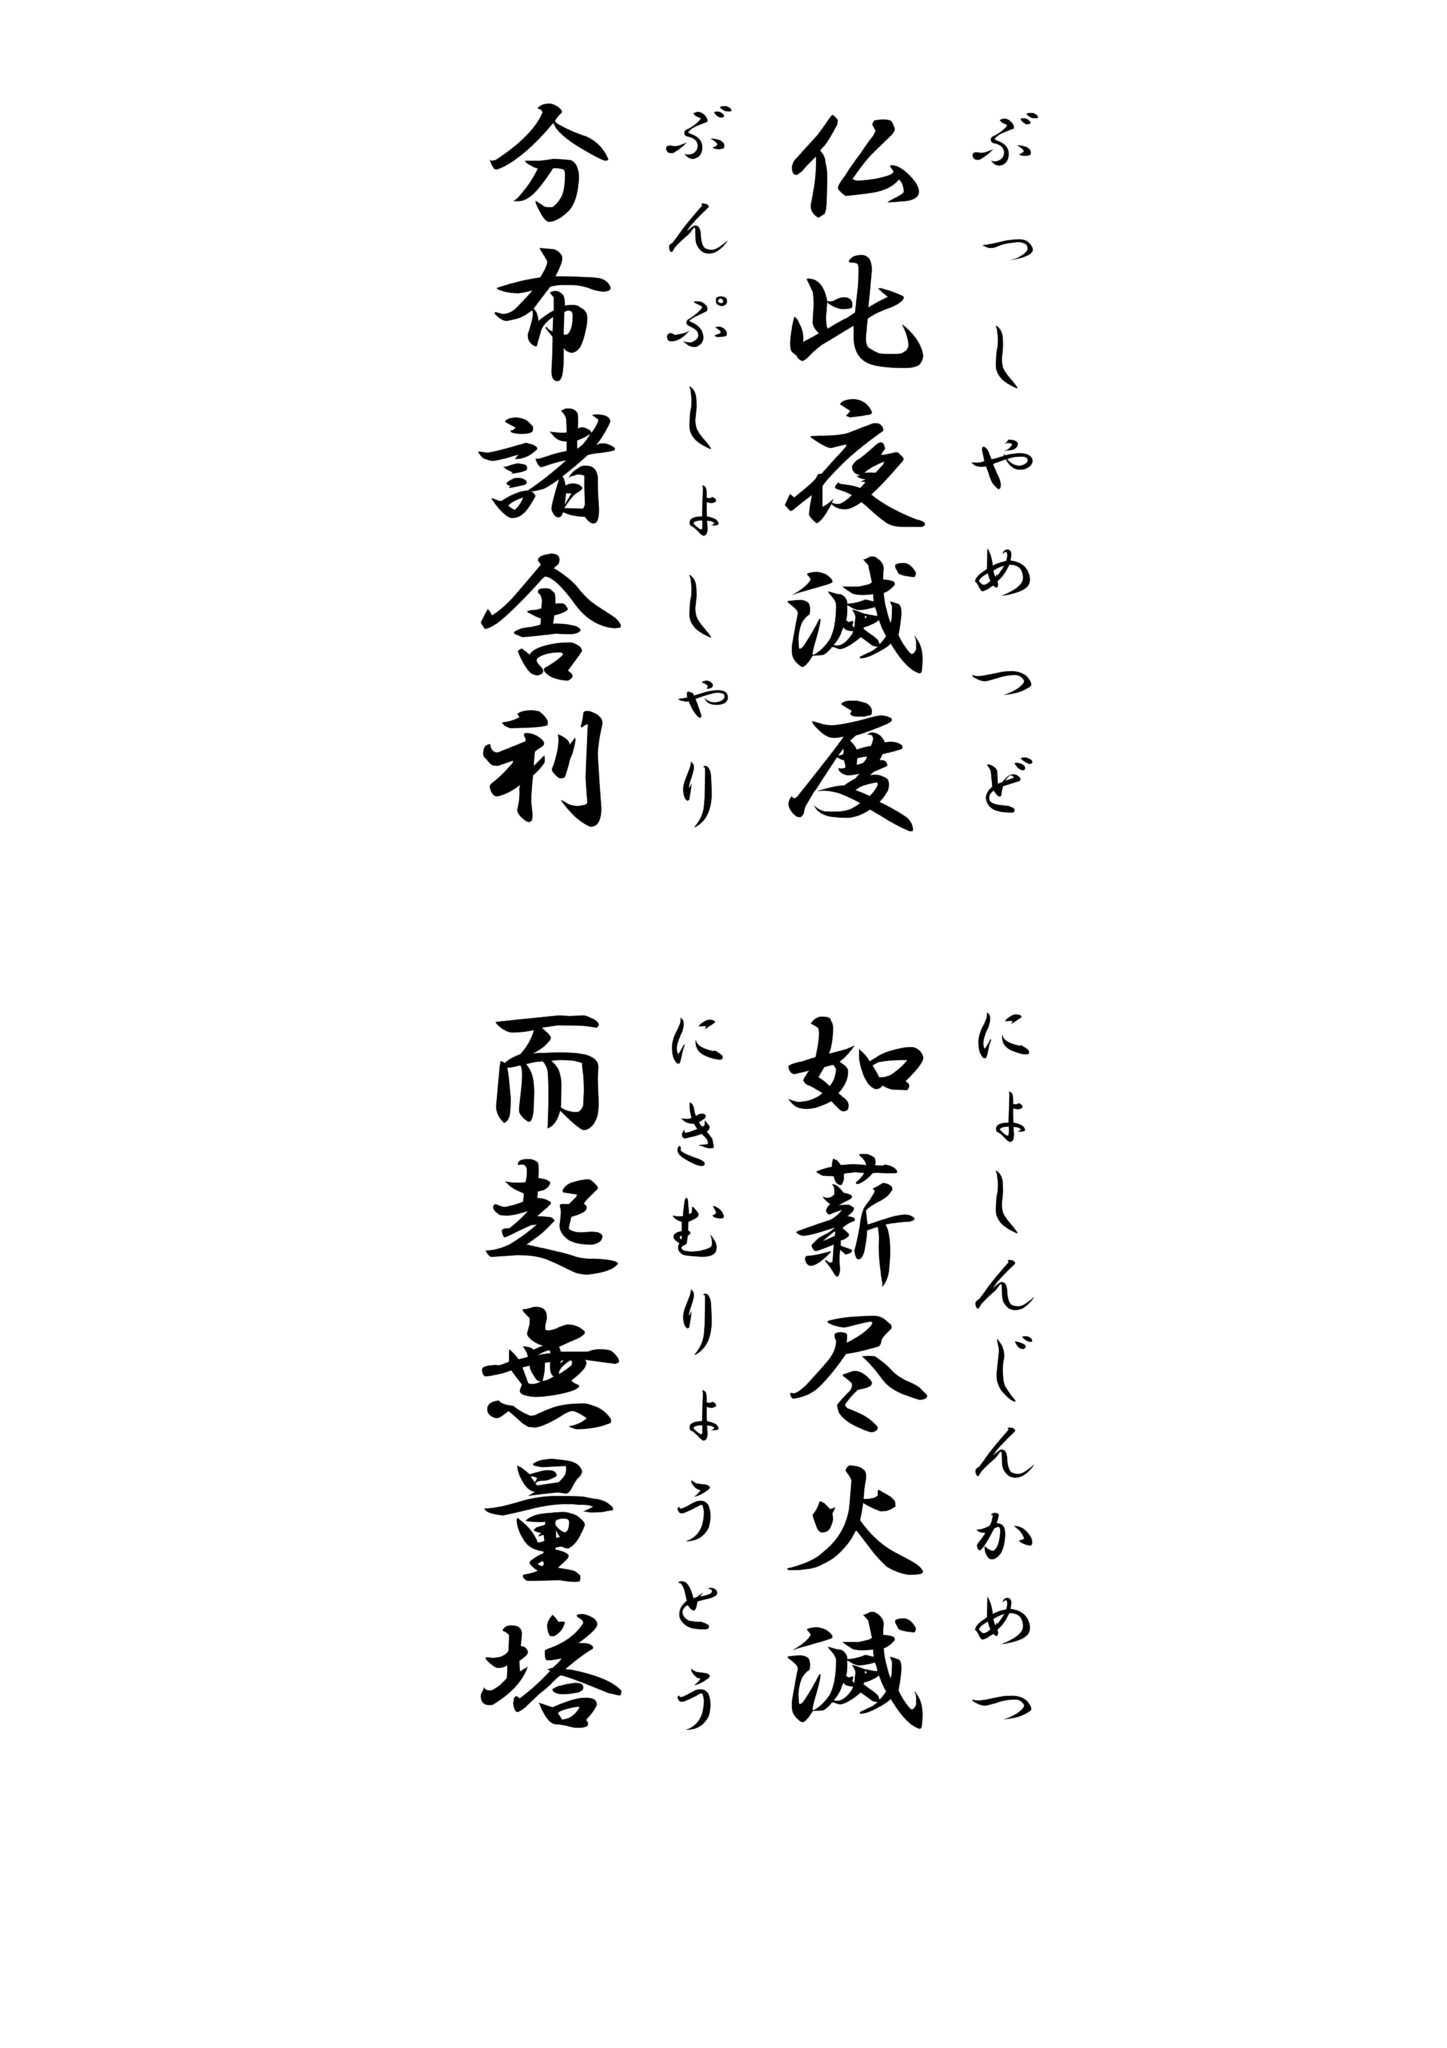 ぶっしやめつど にょしんじんかめつ
仏此夜滅度 如薪尽火滅
ぶんぷしょしゃり にきむりょうとう
分布諸舎利 而起無量塔